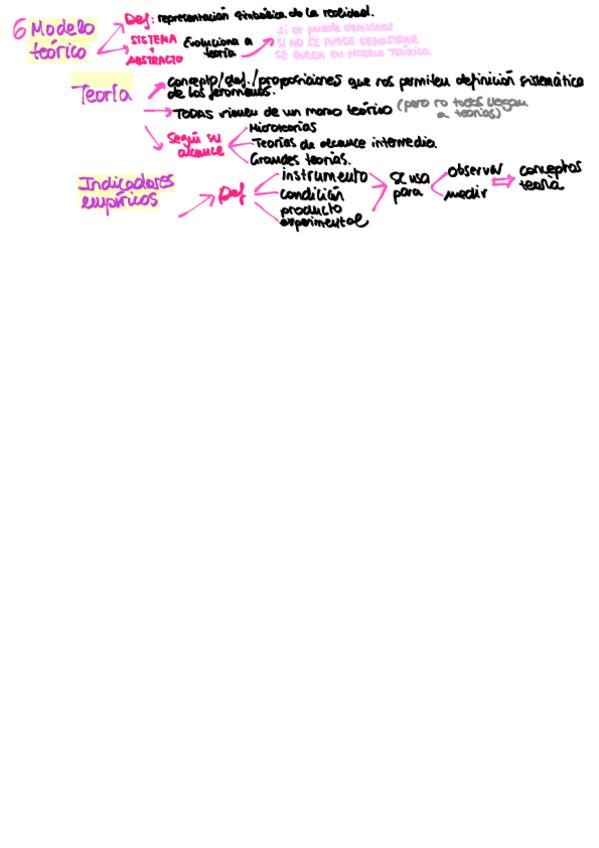 6 Modelo teórico
Def: representación simbólica de la realidad.
SISTEMA + ABSTRACTO
Evoluciona a teoría
Si se puede demostrar
SI NO SE PUEDE DEMOSTRAR
SE QUEDA EN MODELO TEÓRICO.
Teoría
concepto/def./proposiciones que nos permiten definición sistemática
de los fenómenos.
TODAS vienen de un marco teórico (pero no todos llegan
a teorías)
Según su alcance
Microteorías
Teorías de alcance intermedio.
Grandes teorías.
Indicadores empíricos
Def
instrumento
condición
producto experimental
Se usa para
observar
medir
conceptos teoría